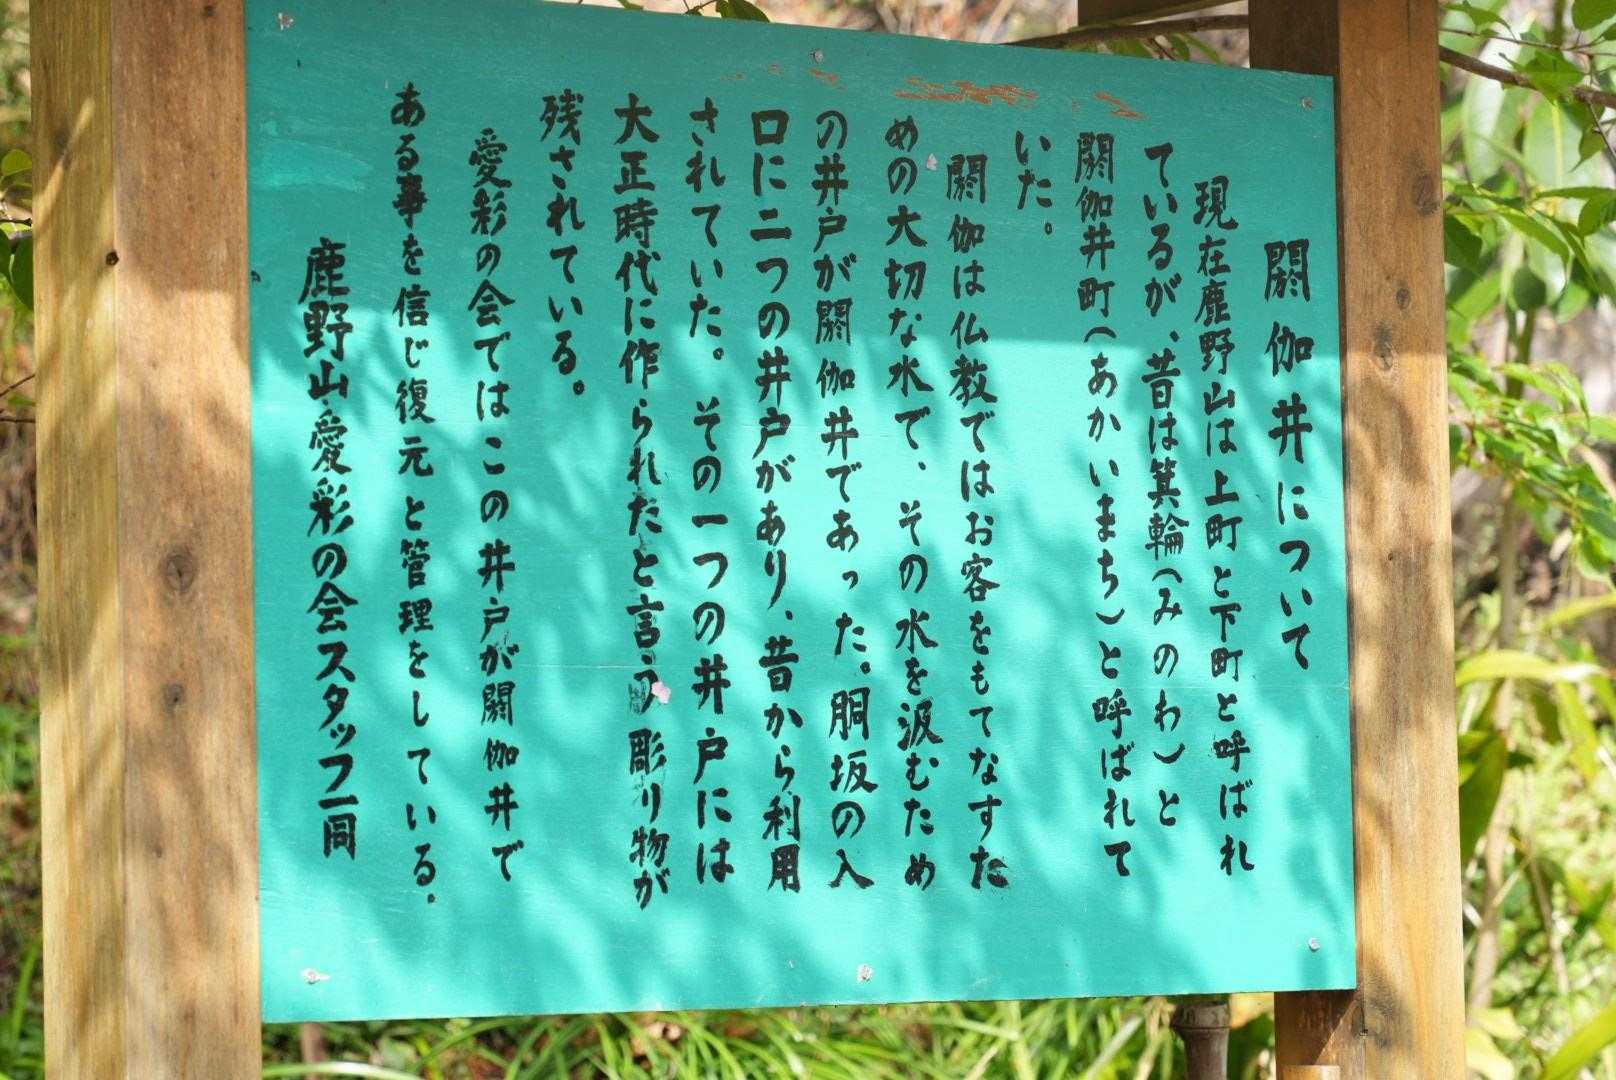 閼伽井について
現在鹿野山は上町と下町と呼ばれ
ているが、昔は箕輪(みのわ)と
閼伽井町(あかいまち)と呼ばれて
いた。
閼伽は仏教ではお客をもてなすた
めの大切な水で、その水を汲むため
の井戸が閼伽井であった。胴坂の入
口に二つの井戸があり、昔から利用
されていた。その一つの井戸には
大正時代に作られたと言う彫り物が
残されている。
愛彩の会ではこの井戸が閼伽井で
ある事を信じ復元と管理をしている。
鹿野山愛彩の会スタッフ一同